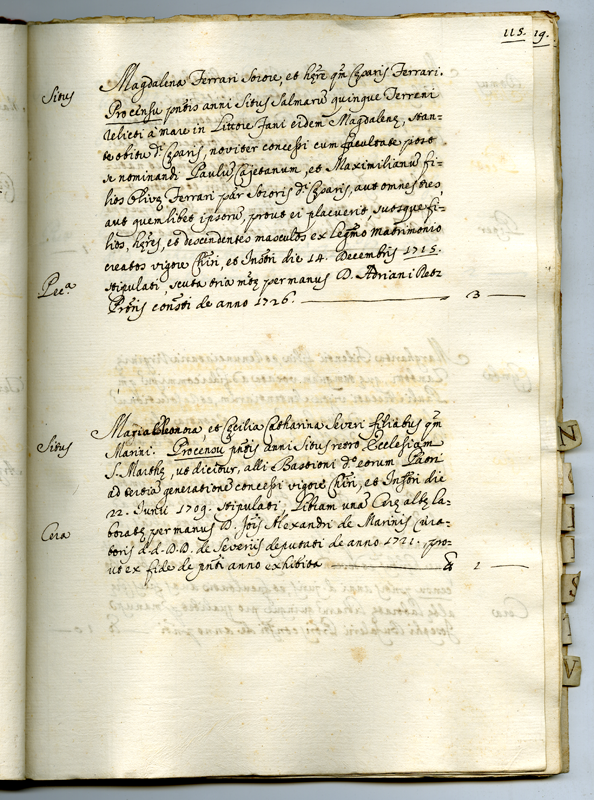 115. 19.
Situs
Magdalena Ferrari Sorore, et hęre qm Cęsaris Ferrari.
Pro censu pntis anni Situs Salmarū quinque Terreni
relicti à mare in Littore Fani eidem Magdalenę, stan-
te obitu d. Cęsaris, noviter concessi cum facultate post
se nominandi Paulū Cajetanum, et Maximilianū fi-
lios Olivę Ferrari par Sororis d. Cęsaris, aut omnes tres,
aut quemlibet ipsorū, prout ei placuerit, suosque fi-
lios, hęres, et descendentes masculos ex legmo matrimonio
creatos vigore Chiri, et Instri die 14. Decembris 1715.
Pec.a
stipulati, scuta tria mtę per manus D. Adriani Betz
Prtris constti de anno 1726. 3
Situs
Maria Eleonora, et Cęcilia Catharina Severi filiabus qm
Marini. Pro censu pntis anni Situs retro Ecclesiam
S. Marthę, ut dicitur, alli Bastioni do eorum Patri
ad tertiā generationē concessi vigore Chiri, et Instri die
22. Junii 1709. stipulati, Libram unā Cerę albę la-
Cera
boratę per manus D. Jois Alexandri de Marinis Cura-
toris d.d. D.D. de Severis deputati de anno 1721. pro-
ut ex fide de pnti anno exhibita 1
N
V